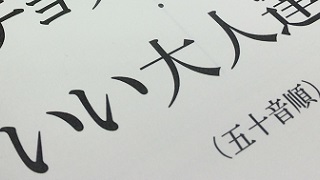 いい大人達
(五十音順)